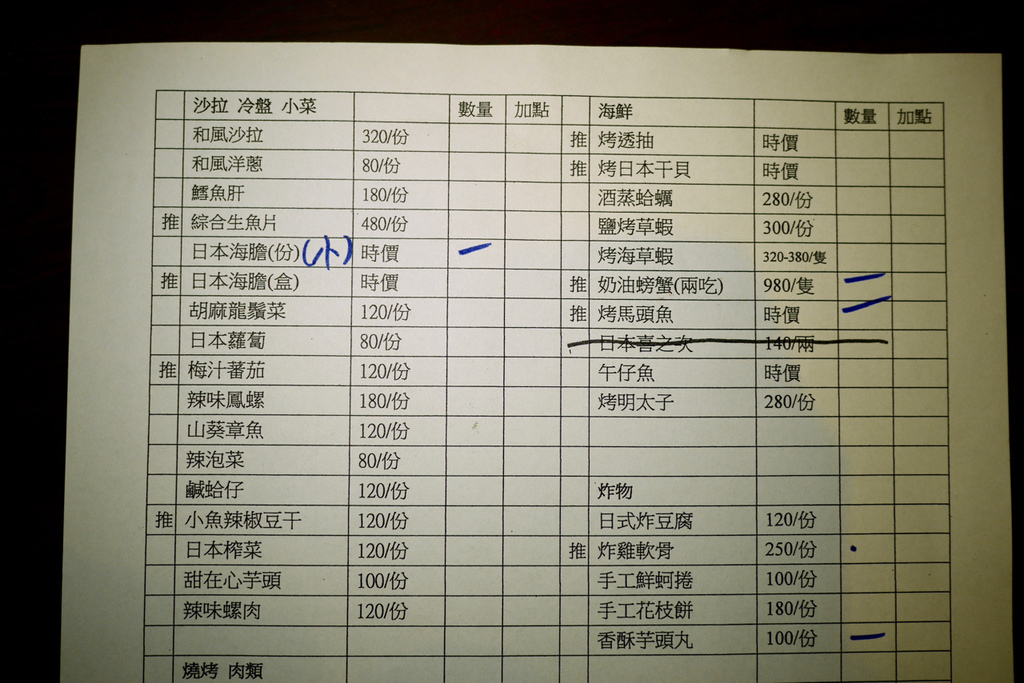 沙拉 冷盤 小菜 數量 加點
和風沙拉 320/份
和風洋蔥 80/份
鱈魚肝 180/份
推 綜合生魚片 480/份
日本海膽(份)(小) 時價 一
推 日本海膽(盒) 時價
胡麻龍鬚菜 120/份
日本蘿蔔 80/份
推 梅汁蕃茄 120/份
辣味鳳螺 180/份
山葵章魚 120/份
辣泡菜 80/份
鹹蛤仔 120/份
推 小魚辣椒豆干 120/份
日本榨菜 120/份
甜在心芋頭 100/份
辣味螺肉 120/份
燒烤 肉類
海鮮 數量 加點
推 烤透抽 時價
推 烤日本干貝 時價
酒蒸蛤蠣 280/份
鹽烤草蝦 300/份
烤海草蝦 320-380/隻
推 奶油螃蟹(兩吃) 980/隻 一
推 烤馬頭魚 時價 一
日本喜之次 140/兩
午仔魚 時價
烤明太子 280/份
炸物
日式炸豆腐 120/份
推 炸雞軟骨 250/份
手工鮮蚵捲 100/份
手工花枝餅 180/份
香酥芋頭丸 100/份 一